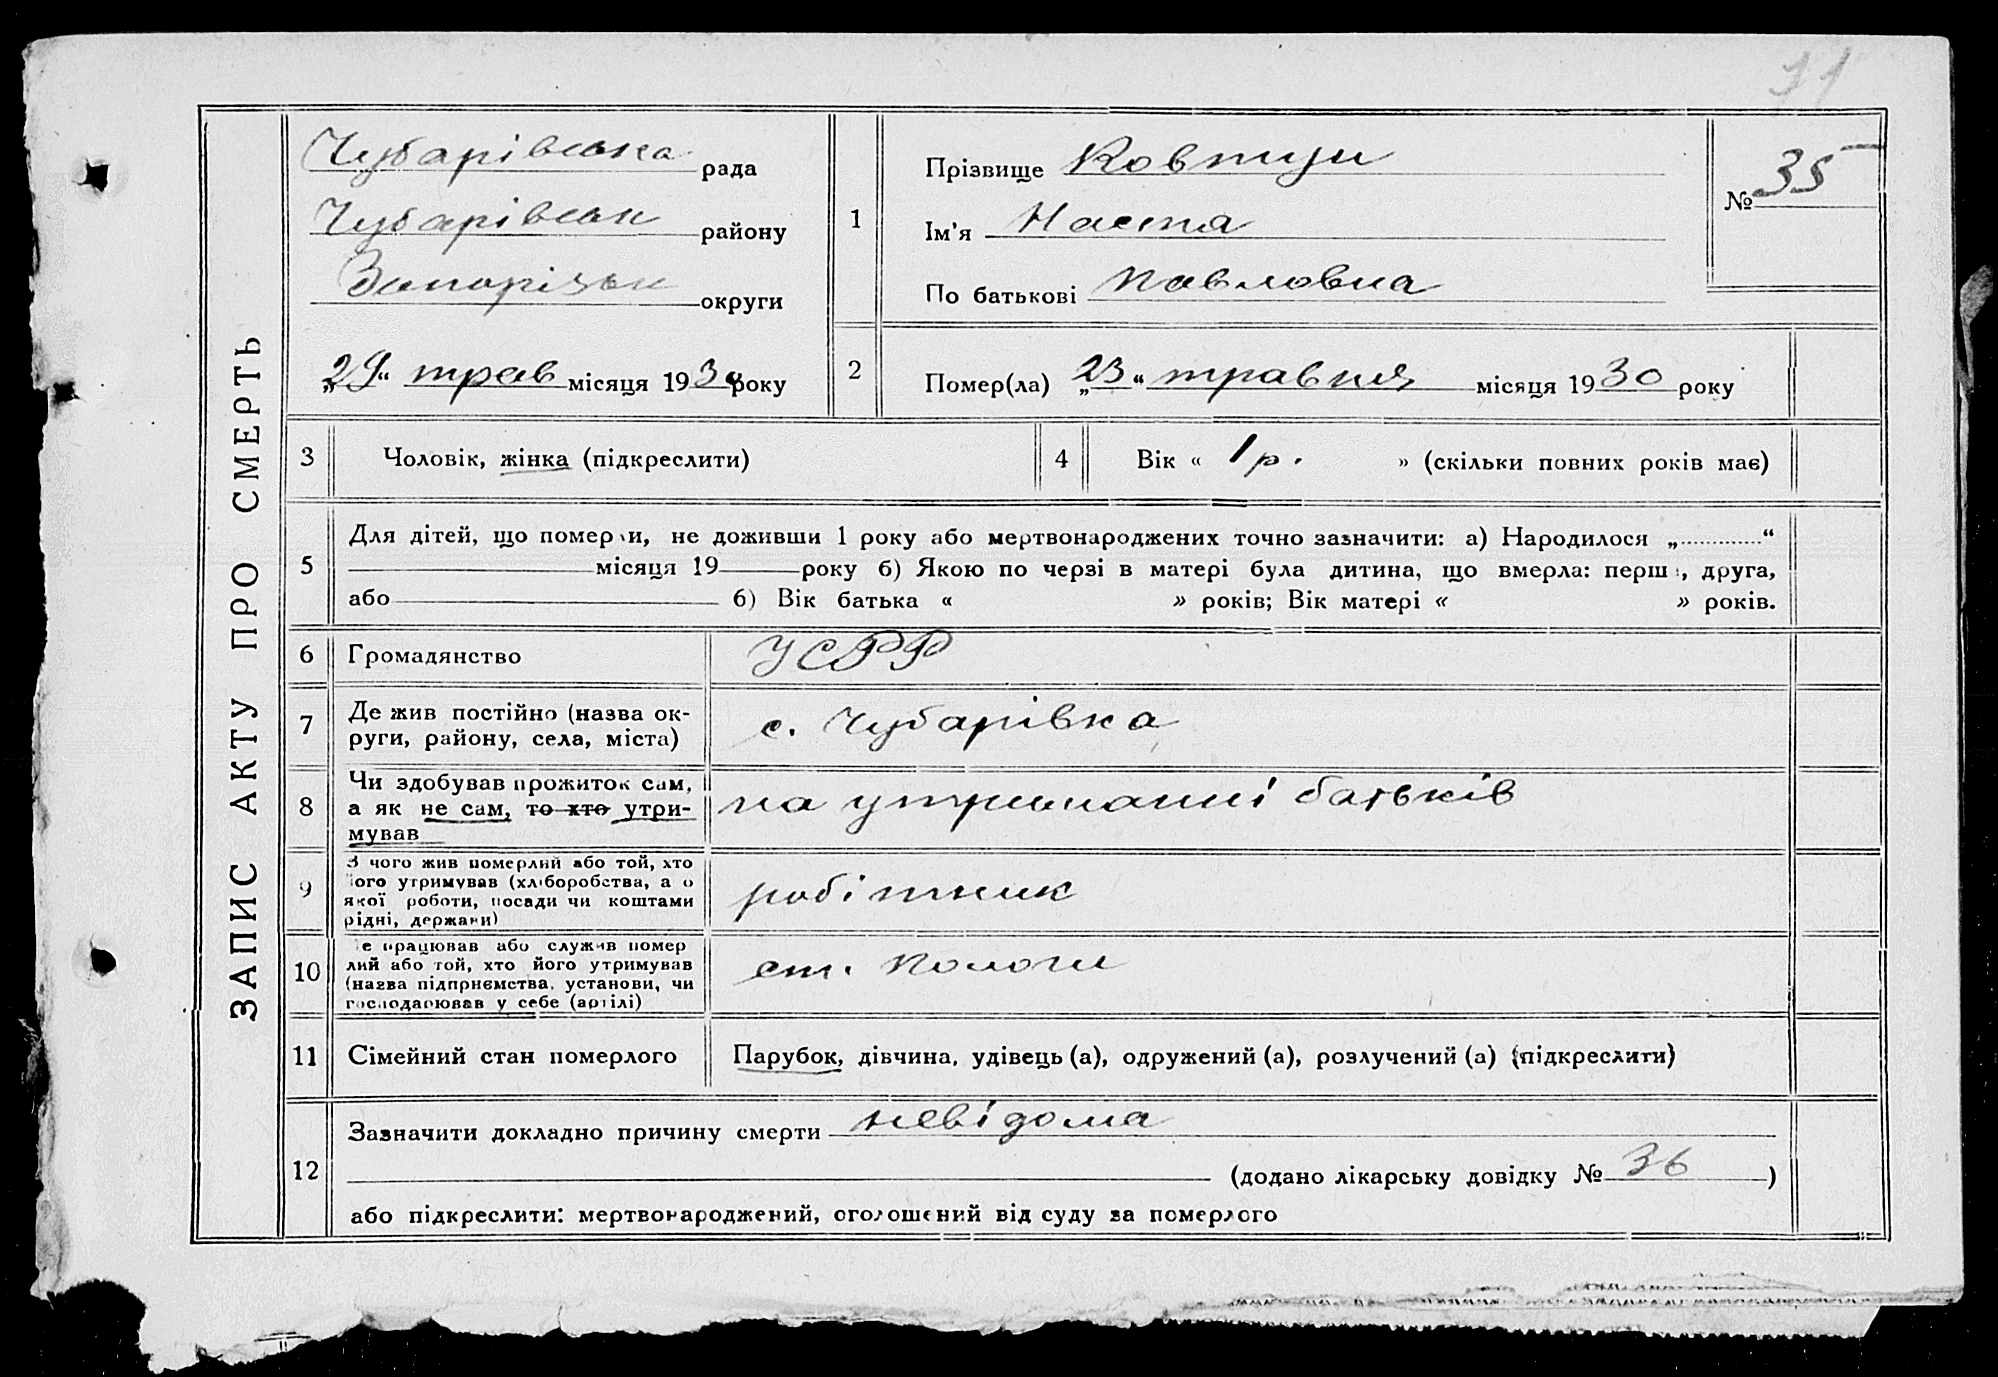 71
ЗАПИС АКТУ ПРО СМЕРТЬ
Чубарівська рада
Чубарівськ району
Запорізьк округи
„29“ трав місяця 1930 року
1
Прізвище Ковтун
Ім'я Настя
По батькові Павловна
№ 35
2
Помер(ла) „23“ травня місяця 1930 року
3
Чоловік, жінка (підкреслити)
4
Вік « 1 р. » (скільки повних років має)
5
Для дітей, що померли, не доживши 1 року або мертвонароджених точно зазначити: а) Народилося „............“
місяця 19 року б) Якою по черзі в матері була дитина, що вмерла: перша, друга,
або 6) Вік батька « » років; Вік матері « » років.
6
Громадянство
УСРР
7
Де жив постійно (назва ок-
руги, району, села, міста)
с. Чубарівка
8
Чи здобував прожиток сам,
а як не сам, то хто утри-
мував
на утриманні батьків
9
З чого жив померлий або той, хто
його утримував (хліборобства, а о
якої роботи, посади чи коштами
рідні, держави)
робітник
10
Де працював або служив помер
лий або той, хто його утримував
(назва підприємства, установи, чи
господарював у себе (артілі)
ст. Пологи
11
Сімейний стан померлого
Парубок, дівчина, удівець (а), одружений (а), розлучений (а) (підкреслити)
12
Зазначити докладно причину смерти невідома
(додано лікарську довідку № 36 )
або підкреслити: мертвонароджений, оголошений від суду за померлого